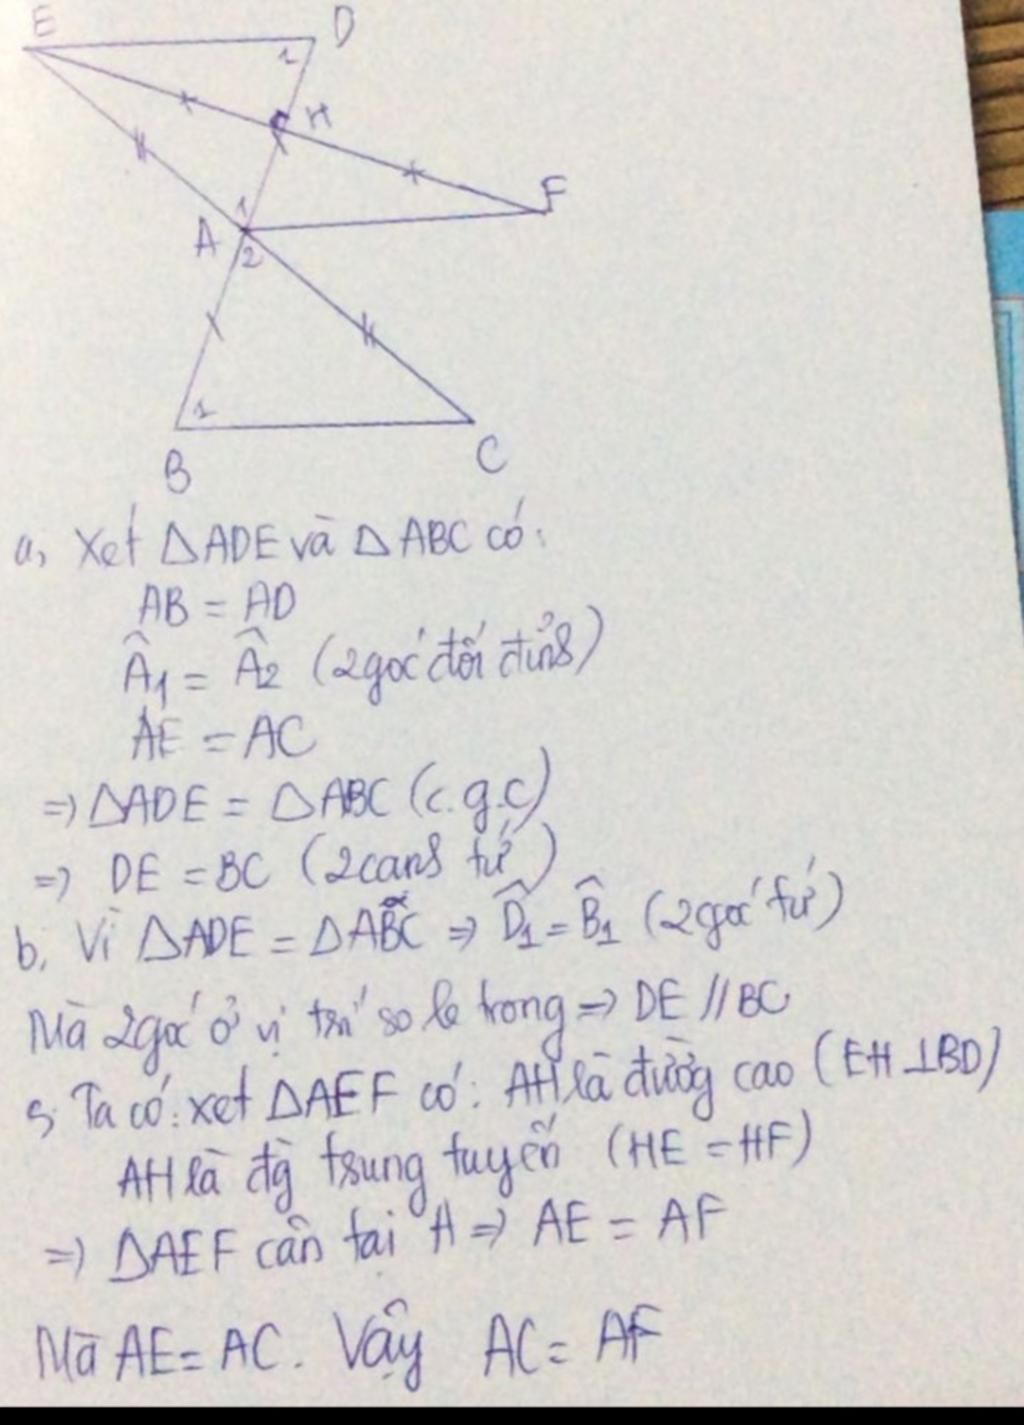 E
D
1
H
F
1
A
2
1
B
C
a, Xét △ADE và △ABC có:
AB = AD
Â1 = Â2 (2góc đối đỉnh)
AE = AC
=> △ADE = △ABC (c.g.c)
=> DE = BC (2cạnh tứ)
b, Vì △ADE = △ABC => D̂1 = B̂1 (2góc tứ)
Mà 2góc ở vị trí so le trong => DE // BC
Ta có: xét △AEF có: AH là đường cao (EH ⊥ BD)
AH là đg trung tuyến (HE = HF)
=> △AEF cân tại A => AE = AF
Mà AE = AC. Vậy AC = AF